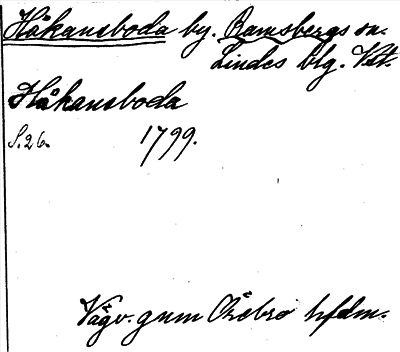 Håkansboda by. Ramsbergs sn.
Lindes blg. Vstt.
Håkansboda
S. 26. 1799.
Vägv. gnm Örebro hfdm.